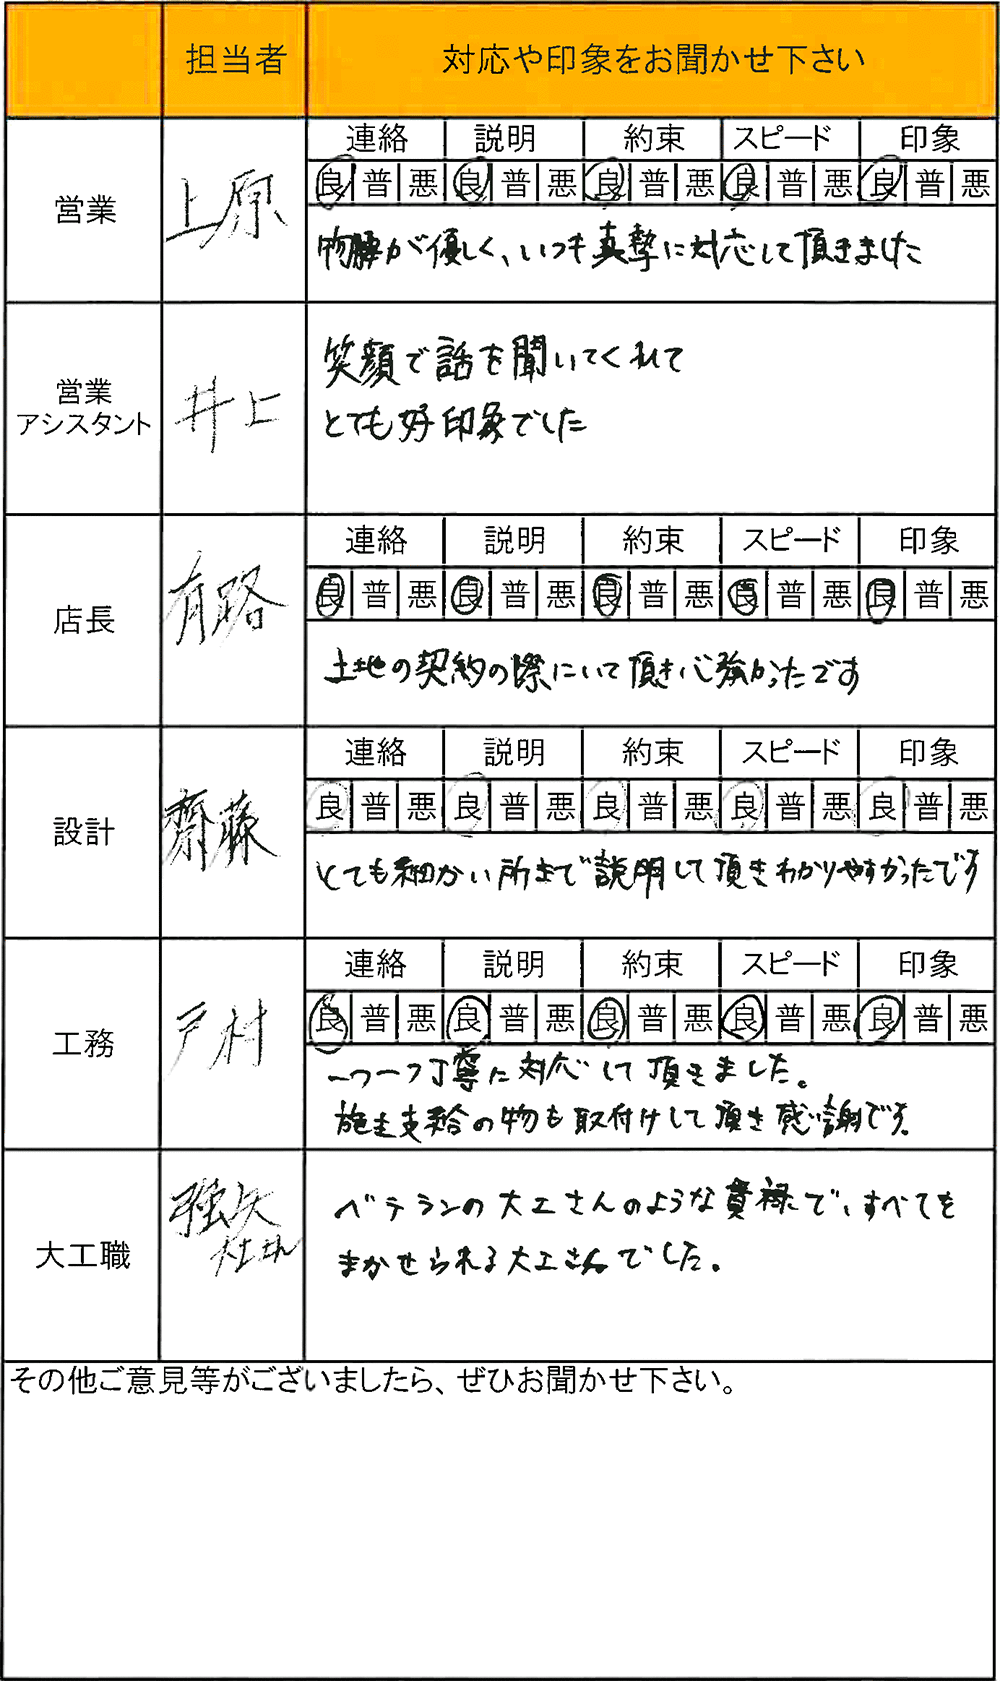 担当者 対応や印象をお聞かせ下さい
営業 上原
連絡 説明 約束 スピード 印象
良 普 悪 良 普 悪 良 普 悪 良 普 悪 良 普 悪
物腰が優しく、いつも真摯に対応して頂きました
営業
アシスタント 井上
笑顔で話を聞いてくれて
とても好印象でした
店長 有路
連絡 説明 約束 スピード 印象
良 普 悪 良 普 悪 良 普 悪 良 普 悪 良 普 悪
土地の契約の際にいて頂き心強かったです
設計 齋藤
連絡 説明 約束 スピード 印象
良 普 悪 良 普 悪 良 普 悪 良 普 悪 良 普 悪
とても細かい所まで説明して頂きわかりやすかったです
工務 戸村
連絡 説明 約束 スピード 印象
良 普 悪 良 普 悪 良 普 悪 良 普 悪 良 普 悪
一つ一つ丁寧に対応して頂きました。
施主支給の物も取付けして頂き感謝です。
大工職 強矢
大工さん
ベテランの大工さんのような貫禄で、すべてを
まかせられる大工さんでした。
その他ご意見等がございましたら、ぜひお聞かせ下さい。